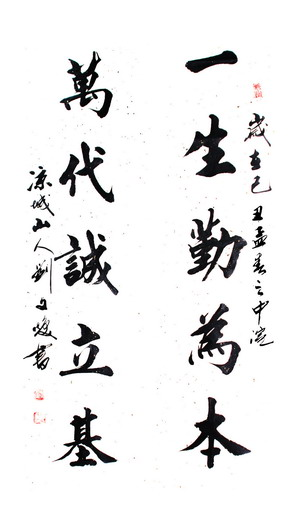 歲在己丑孟春之中浣
一生勤為本
萬代誠立基
凉城山人劉文煥書